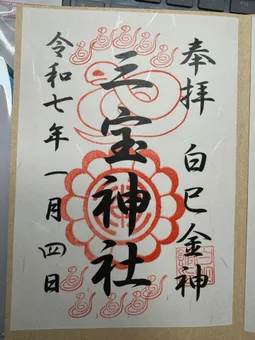 奉拝
白巳金神
三宝神社
令和七年一月四日